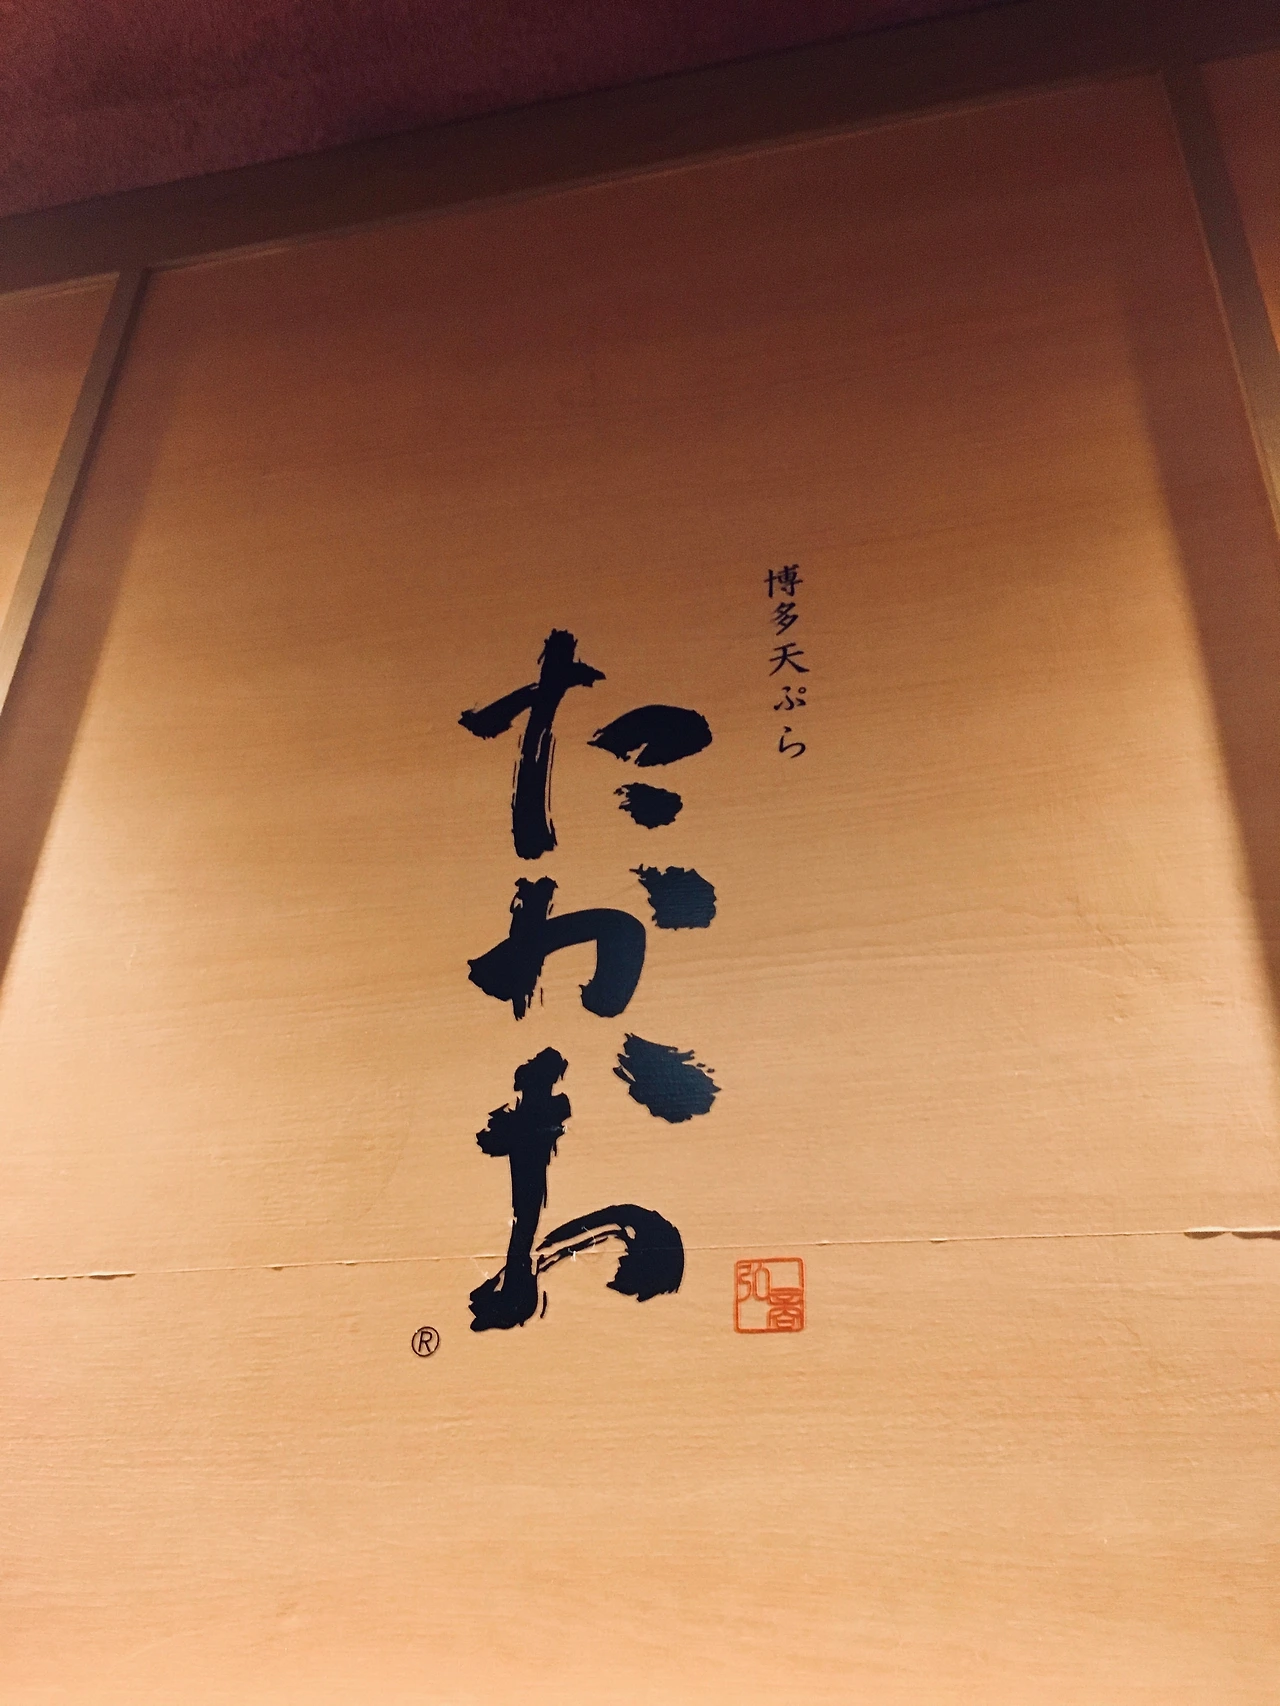 博多天ぷら
たかお
®